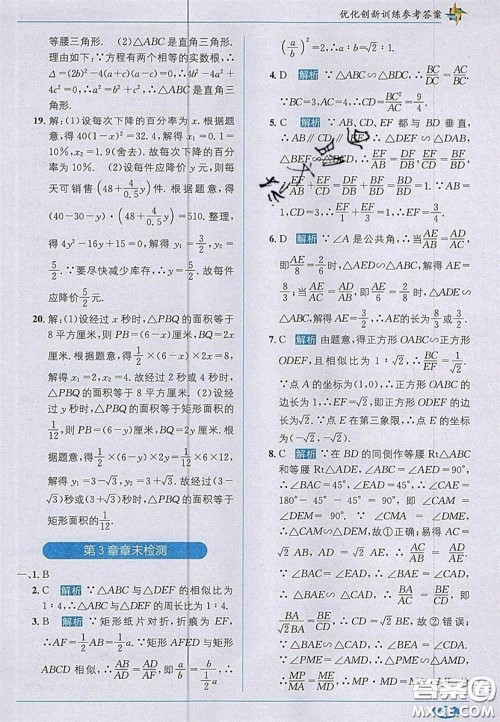 优化创新训练参考答案
等腰三角形. (2)△ABC是直角三角形.
理由如下:∵方程有两个相等的实数根,∴
Δ=(2b)²-4(a+c)(a-c)=0,∴4b²-4a²+
4c²=0,∴a²=b²+c²,∴△ABC是直角三角形.
19. 解:(1)设每次下降的百分率为x,根据题意,
得40(1-x)²=32.4,解得x₁=0.1=10%,
x₂=1.9(舍去). 故每次下降的百分
率为10%. (2)设每件应降价y元,则每
天可销售(48+4·y/0.5)件,根据题意,得
(40-30-y)(48+4·y/0.5)=510. 整理得
4y²-16y+15=0,解得y₁=3/2,y₂=
5/2. ∵要尽快减少库存,∴y=5/2. 故每件
应降价5/2元.
20. 解:(1)设经过x秒时,△PBQ的面积等于
8平方厘米,则PB=(6-x)厘米,BQ=2x
厘米. 根据题意,得1/2×(6-x)×2x=8,
解得x₁=2,x₂=4. 故经过2秒或4秒时,
△PBQ的面积等于8平方厘米. (2)设经
过y秒时,△PBQ的面积等于矩形面积的
1/12,则PB=(6-y)厘米,BQ=2y厘米. 根
据题意,得1/2×(6-y)×2y=1/12×6×12,
解得y₁=3-√3,y₂=3+√3. 故经过(3-
√3)秒或(3+√3)秒时,△PBQ的面积等于
矩形面积的1/12.
第3章章末检测
一、1. B
2. C 解析 ∵△ABC与△DEF的相似比为
1∶4,∴△ABC与△DEF的周长比为1∶4.
3. B 解析 ∵矩形纸片对折,折痕为EF,
∴AF=1/2AB=1/2a. ∵矩形AFED与矩形
ABCD相似,∴AB/AD=AD/AF,即a/b=b/(1/2a),∴
(a/b)²=2,∴a/b=√2.
4. D 解析 ∵△ABC∽△BDC,∴DC/BC=BC/AC.
∵BC=3,AC=4,∴CD=BC²/AC=9/4.
5. C 解析 ∵AB、CD、EF都与BD垂直,
∴AB∥CD∥EF,∴△DEF∽△DAB,
△BEF∽△BCD,∴EF/AB=DF/DB,EF/CD=BF/BD,
∴EF/AB+EF/CD=DF/DB+BF/BD=BD/BD=1. ∵AB=
1,CD=3,∴EF/1+EF/3=1,∴EF=3/4.
6. D 解析 ∵∠A是公共角,∴当AE/AB=AD/AC,
即AE/8=2/6时,△AED∽△ABC,解得AE=
8/3;当AE/AC=AD/AB,即AE/6=2/8时,△ADE∽
△ABC,解得AE=3/2. ∴AE的长为8/3或3/2.
7. D 解析 由题意,得正方形OABC∽正方形
ODEF,且相似比为1∶√2,∴OA/OD=1/√2.
∵点A的坐标为(1,0),∴正方形OABC的
边长为1,∴EF=√2,∴正方形ODEF的边
长为√2. ∵点E在第三象限,∴点E的坐
标为(-√2,-√2).
8. C 解析 ∵在BD的同侧作等腰Rt△ABC
和等腰Rt△ADE,∠ABC=∠AED=90°,
∴∠BAC=45°,∠EAD=45°,∴∠CAE=
180°-45°-45°=90°,即∠CAM=
∠DEM=90°. ∵∠CMA=∠DME,
∴△CAM∽△DEM,故①正确;易得AC=
√2AB,AD=√2AE,∴AC/AB=AD/AE=√2.